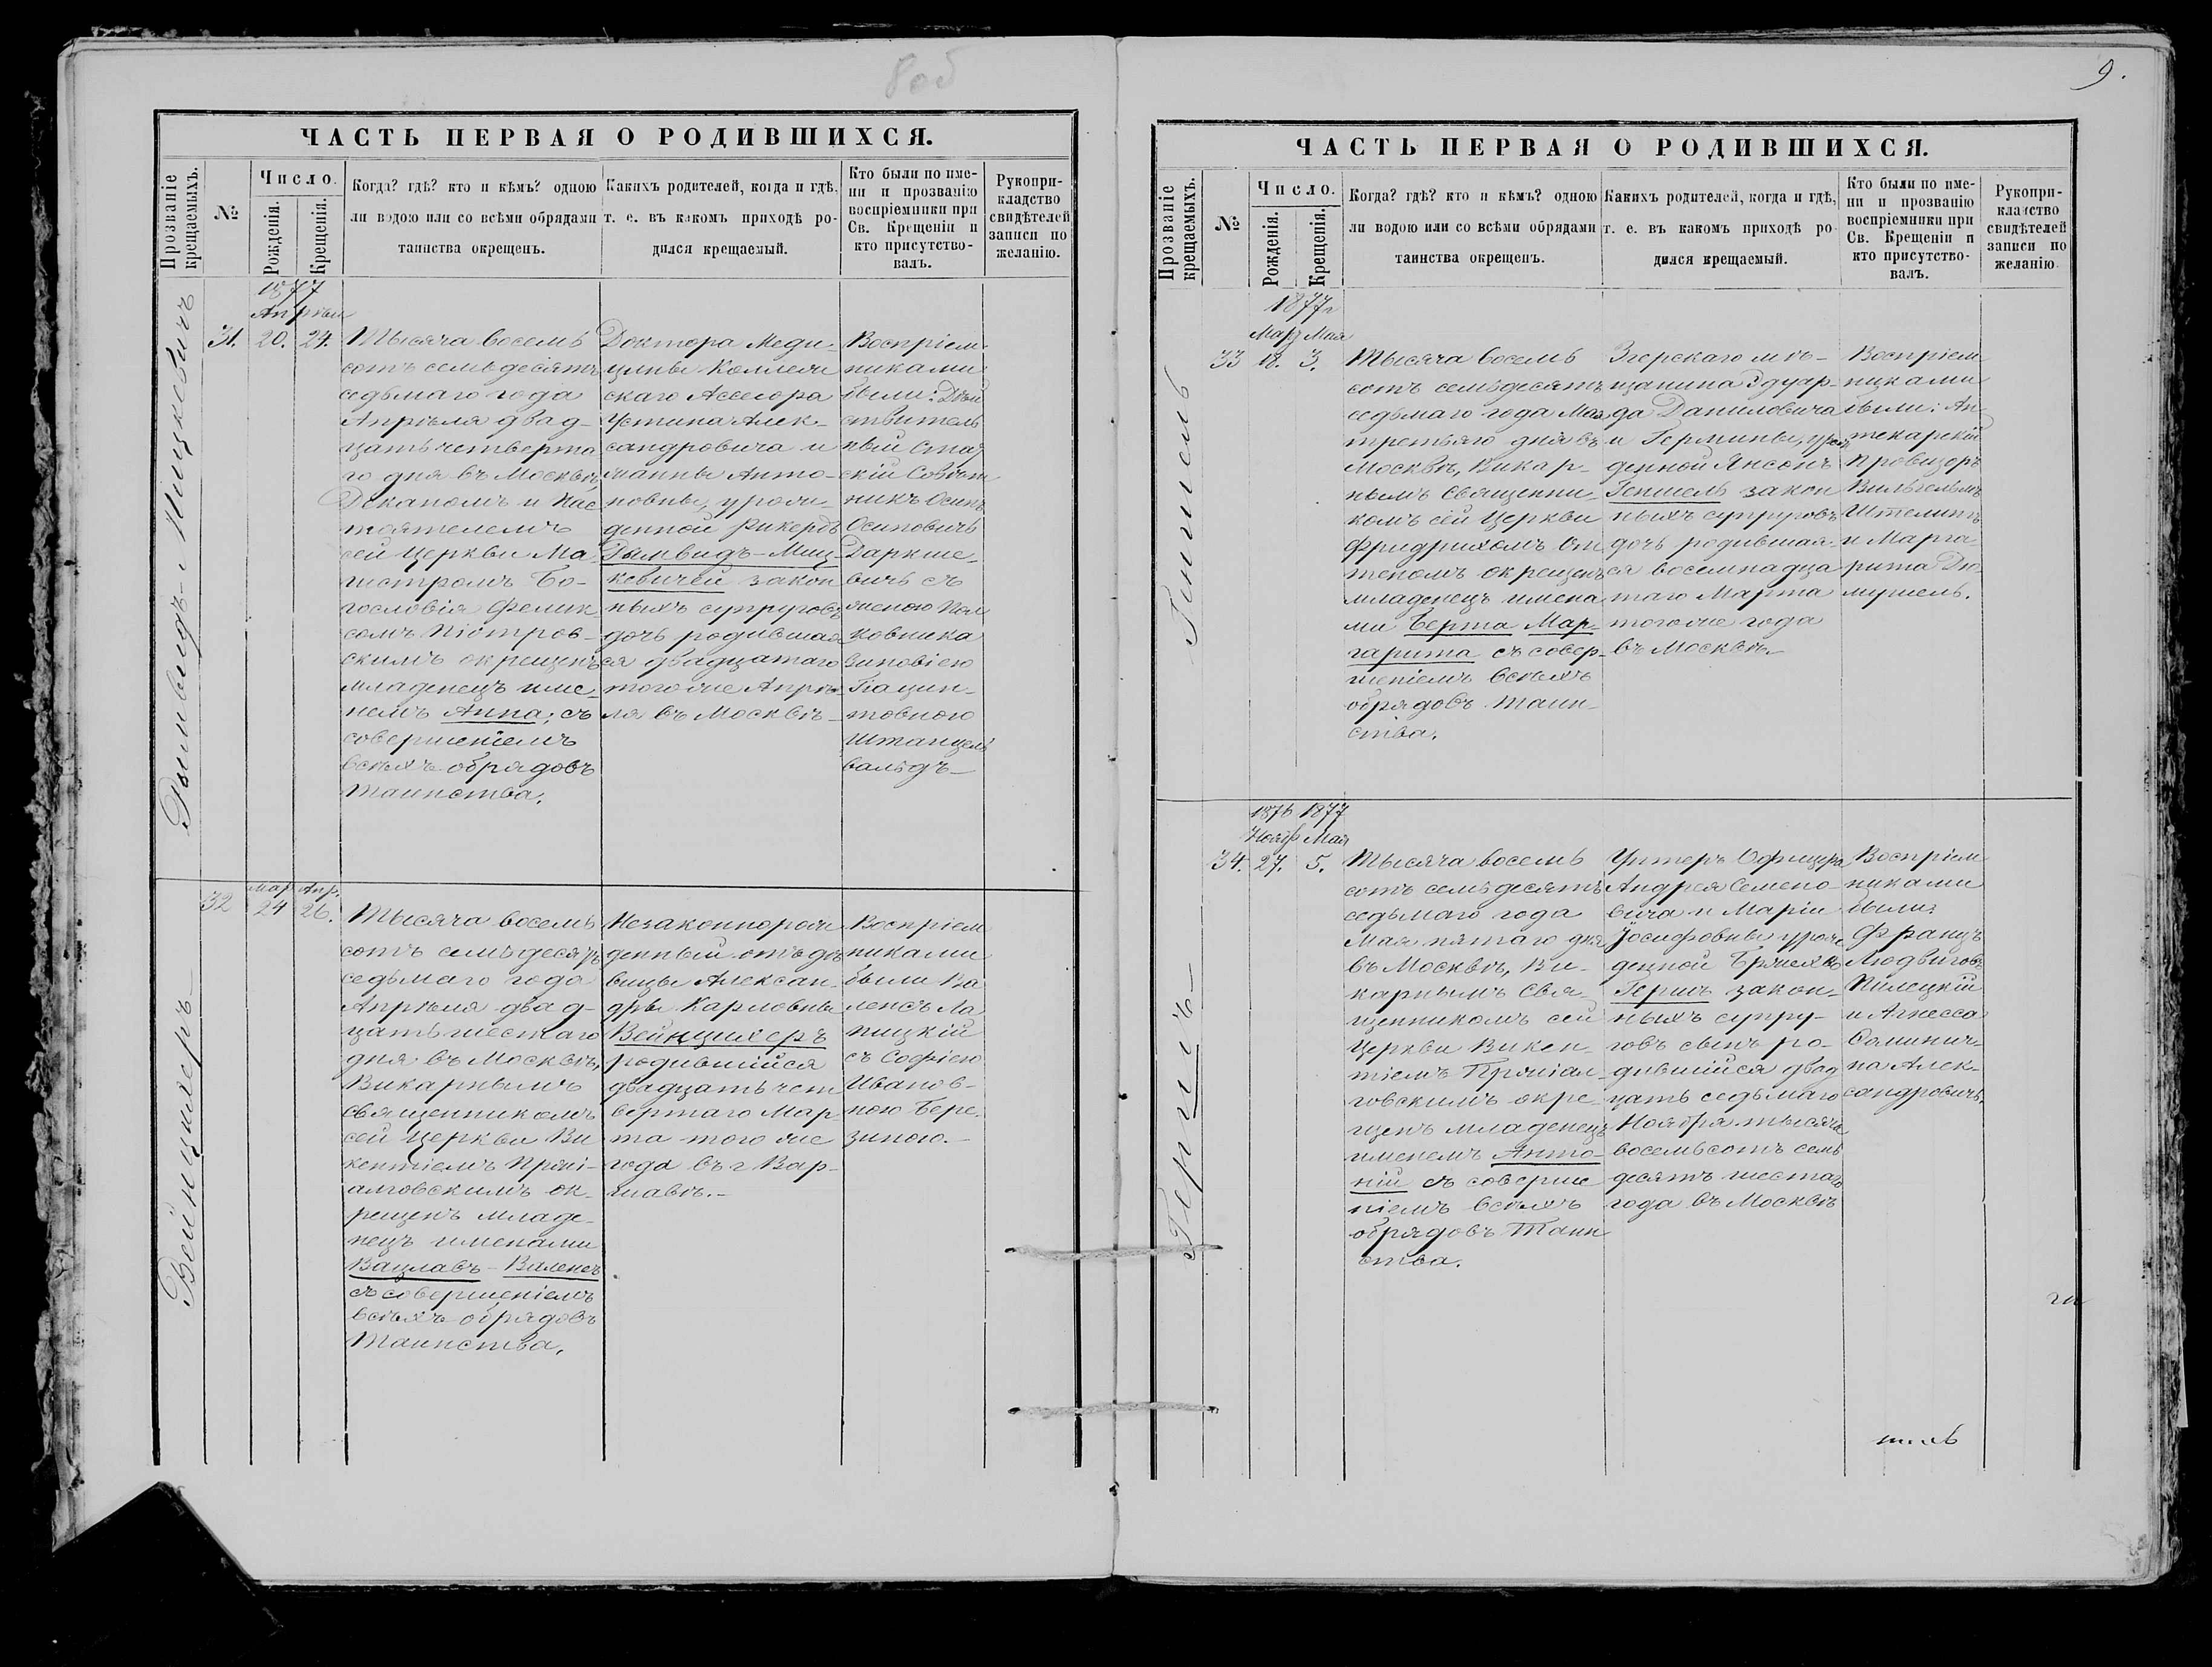 8 об
ЧАСТЬ ПЕРВАЯ О РОДИВШИХСЯ.
Прозваніе
крещаемыхъ.
№
Число.
Рожденія.
Крещенія.
Когда? гдѣ? кто и кѣмъ? одною
ли водою или со всѣми обрядами
таинства окрещенъ.
Какихъ родителей, когда и гдѣ,
т. е. въ какомъ приходѣ ро-
дился крещаемый.
Кто были по име-
ни и прозванію
воспріемники при
Св. Крещеніи и
кто присутство-
валъ.
Рукопри-
кладство
свидѣтелей
записи по
желанію.
1877
Апрѣля
31. 20. 24.
Тысяча восемь
сотъ семьдесятъ
седьмаго года
Апрѣля двад-
цать четверта
го дня въ Москвѣ,
Деканомъ и Нас
тоятелемъ
сей Церкви Ма-
гистромъ Бо-
гословія Фелик-
сомъ Піотров-
скимъ окрещенъ
младенецъ име-
немъ Анна; съ
совершеніемъ
всѣхъ обрядовъ
таинства.
Доктора Меди-
цины Коллеж
скаго Асесора
Устина Алек-
сандровича и
Жанны Анто-
новны, урож-
денной Рикердъ
Дынвидъ-Миц-
кевичей закон
ныхъ супруговъ
дочь родившая
ся двадцатаго
того же Апрѣ-
ля въ Москвѣ-
Воспріем-
никами
были: Дѣй
ствитель
ный Стат
скій Совѣт
никъ Осипъ
Осиповичъ
Даркше-
вичь съ
женою Пол
ковника
Зиновіею
Гіацин-
товною
Штанцель
вальдъ-
32
Мар Апр.
24 26.
Тысяча восемь
сотъ семьдесятъ
седьмаго года
Апрѣля двад-
цать шестаго
дня въ Москвѣ,
Викарнымъ
священникомъ
сей Церкви Ви
кентіемъ Пржі-
алговскимъ ок-
рещенъ младе-
нецъ именами
Вацлавъ-Валенсъ
съ совершеніемъ
всѣхъ обрядовъ
таинства.
Незаконнорож
денный отъ дѣ
вицы Алексан-
дры Карловны
Вейнцихеръ
родившійся
двадцать чет
вертаго Мар-
та того же
года въ г Вар-
шавѣ.-
Воспріем
никами
были Ва
ленсъ Ла
пицкій
съ Софіею
Иванов-
ною Бере-
зиною.-
9.
ЧАСТЬ ПЕРВАЯ О РОДИВШИХСЯ.
Прозваніе
крещаемыхъ.
№
Число.
Рожденія.
Крещенія.
Когда? гдѣ? кто и кѣмъ? одною
ли водою или со всѣми обрядами
таинства окрещенъ.
Какихъ родителей, когда и гдѣ,
т. е. въ какомъ приходѣ ро-
дился крещаемый.
Кто были по име-
ни и прозванію
воспріемники при
Св. Крещеніи и
кто присутство-
валъ.
Рукопри-
кладство
свидѣтелей
записи по
желанію.
1877г
Мар Мая
33 18. 3.
Тысяча восемь
сотъ семьдесятъ
седьмаго года Мая
третьяго дня въ
Москвѣ, Викар-
нымъ Священни-
комъ сей Церкви
Фридрихомъ От
теномъ окрещенъ
младенецъ имена
ми Берта Мар-
гарита съ совер-
шеніемъ всѣхъ
обрядовъ таин-
ства.
Згерскаго мѣ-
щанина Эдуар-
да Даниловича
и Гермины, урож
денной Янсонъ
Гепшель закон
ныхъ супруговъ
дочь родившая-
ся восемнадца
таго Марта
того же года
въ Москвѣ.-
Воспріем
никами
были: Ап-
текарскій
Провизоръ
Вильгельмъ
и Марга
рита
1876 1877
Ноябр Мая
34. 27. 5.
Тысяча восемь
сотъ семьдесятъ
седьмаго года
Мая пятаго дня
въ Москвѣ, Ви-
карнымъ Свя-
щенникомъ сей
Церкви Викен-
тіемъ Пржіал-
говскимъ окре-
щенъ младенецъ
именемъ Анто-
ній съ соверше
ніемъ всѣхъ
обрядовъ Таин
ства.
Унтеръ Офицера
Андрея Семено-
вича и Маріи
Іосифовны урож
денной
Гершъ закон-
ныхъ супру-
говъ сынъ ро-
дившійся двад
цать седьмаго
Ноября тысяча
восемьсотъ семь
десятъ шестаго
года въ Москвѣ
Воспріем
никами
были:
Францъ
Людвигов
Пилецкій
и Агнесса
на Алек-
сандровичъ.